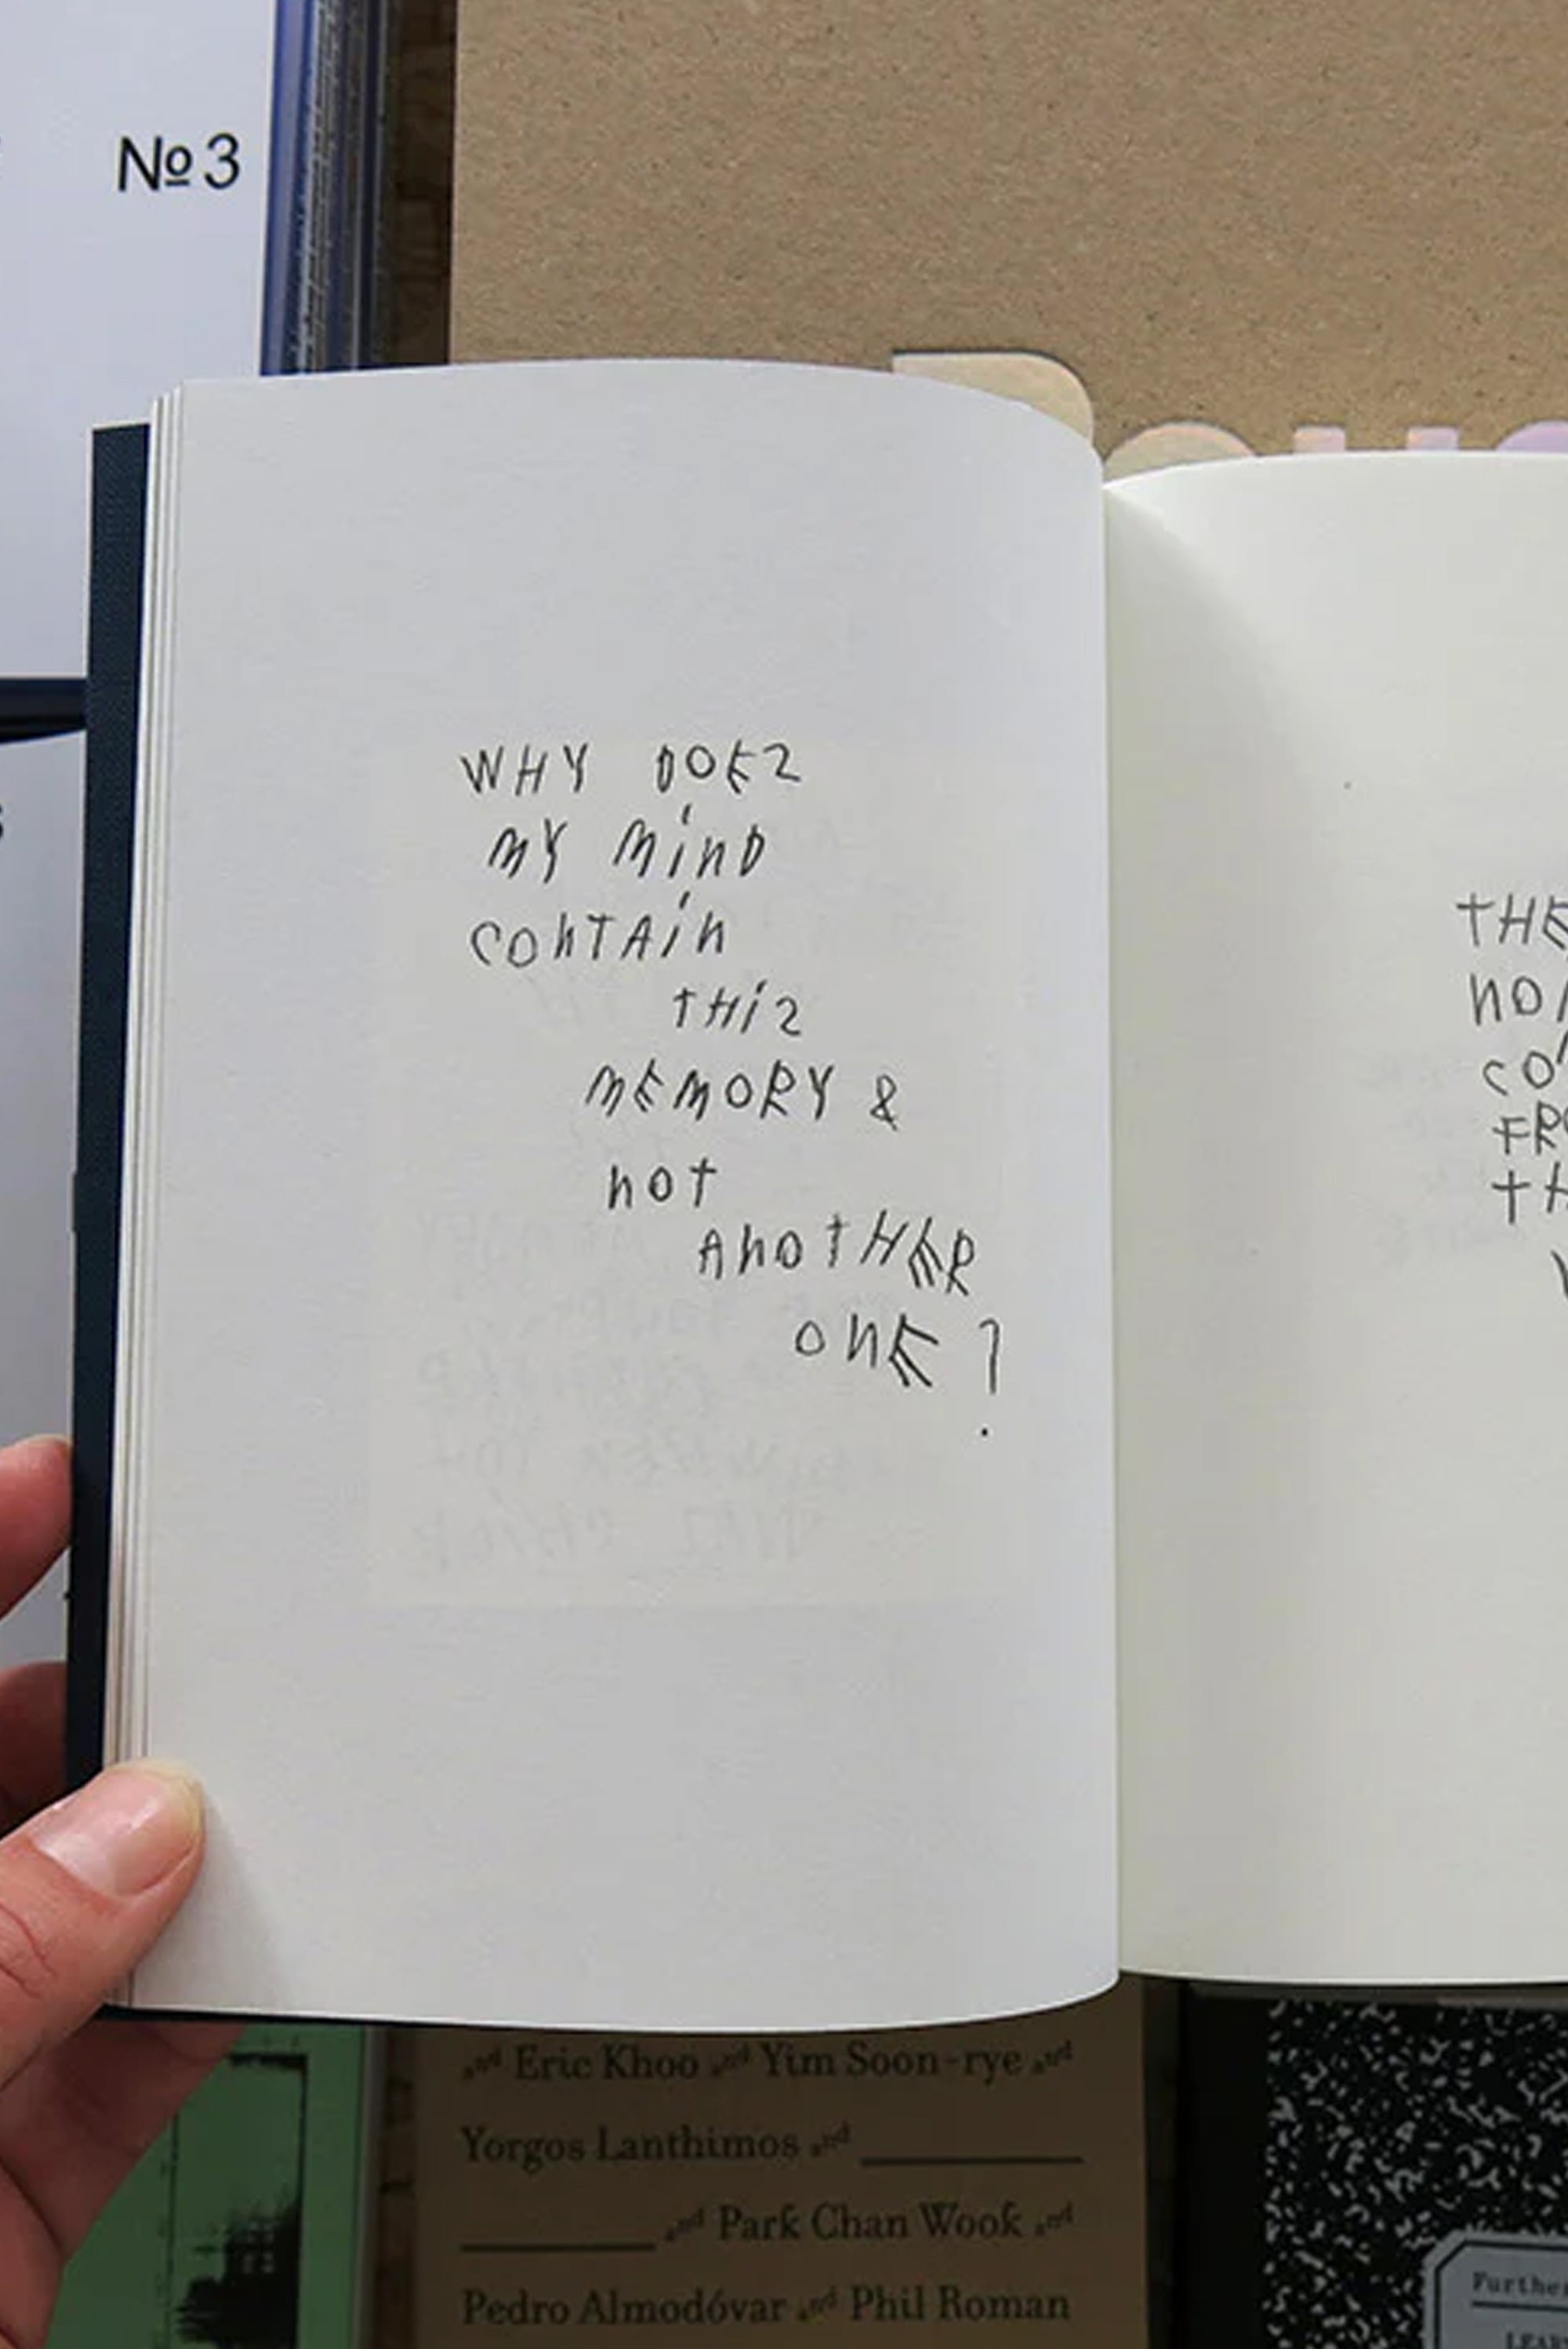 №3
WHY DOES
MY MinD
COnTAin
THiS
MEMORY &
noT
AnOTHER
OnE?
and Eric Khoo and Yim Soon-rye and
Yorgos Lanthimos and
and Park Chan Wook and
Pedro Almodóvar and Phil Roman